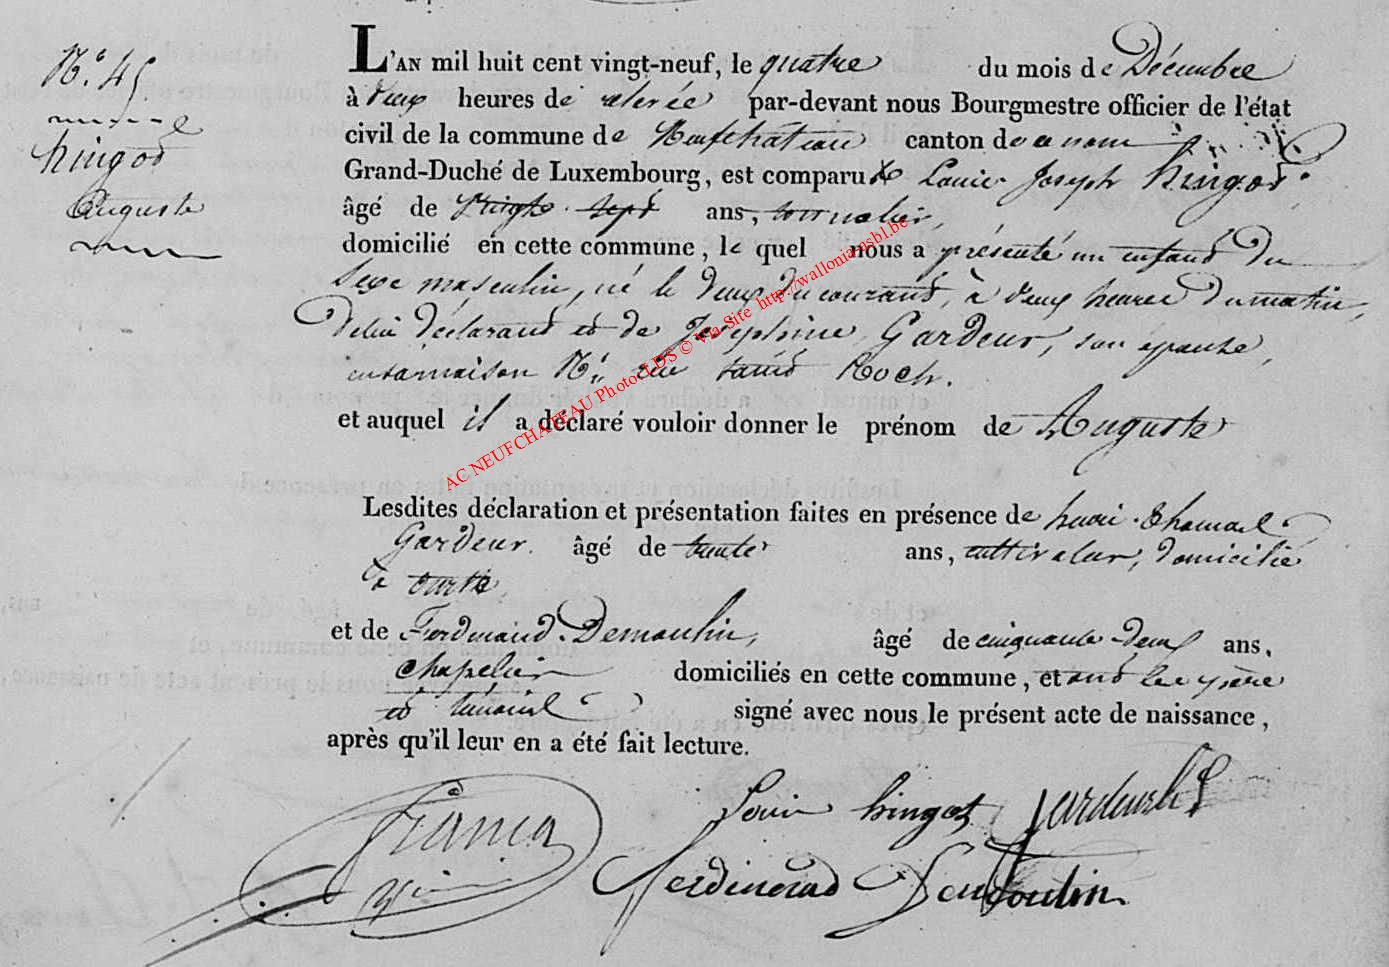 N.° 45
hingot
Auguste
L'AN mil huit cent vingt-neuf, le quatre du mois de Décembre
à deux heures de relevée par-devant nous Bourgmestre officier de l'état
civil de la commune de Neufchateau canton de ce nom
Grand-Duché de Luxembourg, est comparu Louis Joseph hingot
âgé de vingt sept ans, journalier,
domicilié en cette commune, le quel nous a présenté un enfant du
Sexe masculin, né le deux du courant, à deux heures du matin,
de lui déclarant et de Joséphine Gardeur, son épouse,
en sa maison N.° rue saint Roch.
et auquel il a déclaré vouloir donner le prénom de Auguste
Lesdites déclaration et présentation faites en présence de henri
Gardeur âgé de trente ans, cultivateur, domicilié
à
et de Ferdinand Demoulin, âgé de cinquante deux ans,
chapelier domiciliés en cette commune, et ont les père
et témoins signé avec nous le présent acte de naissance,
après qu'il leur en a été fait lecture.
Louis hingot
Ferdinand Demoulin
AC NEUFCHATEAU Photo LDS © Via Site http://wallonia-asbl.be